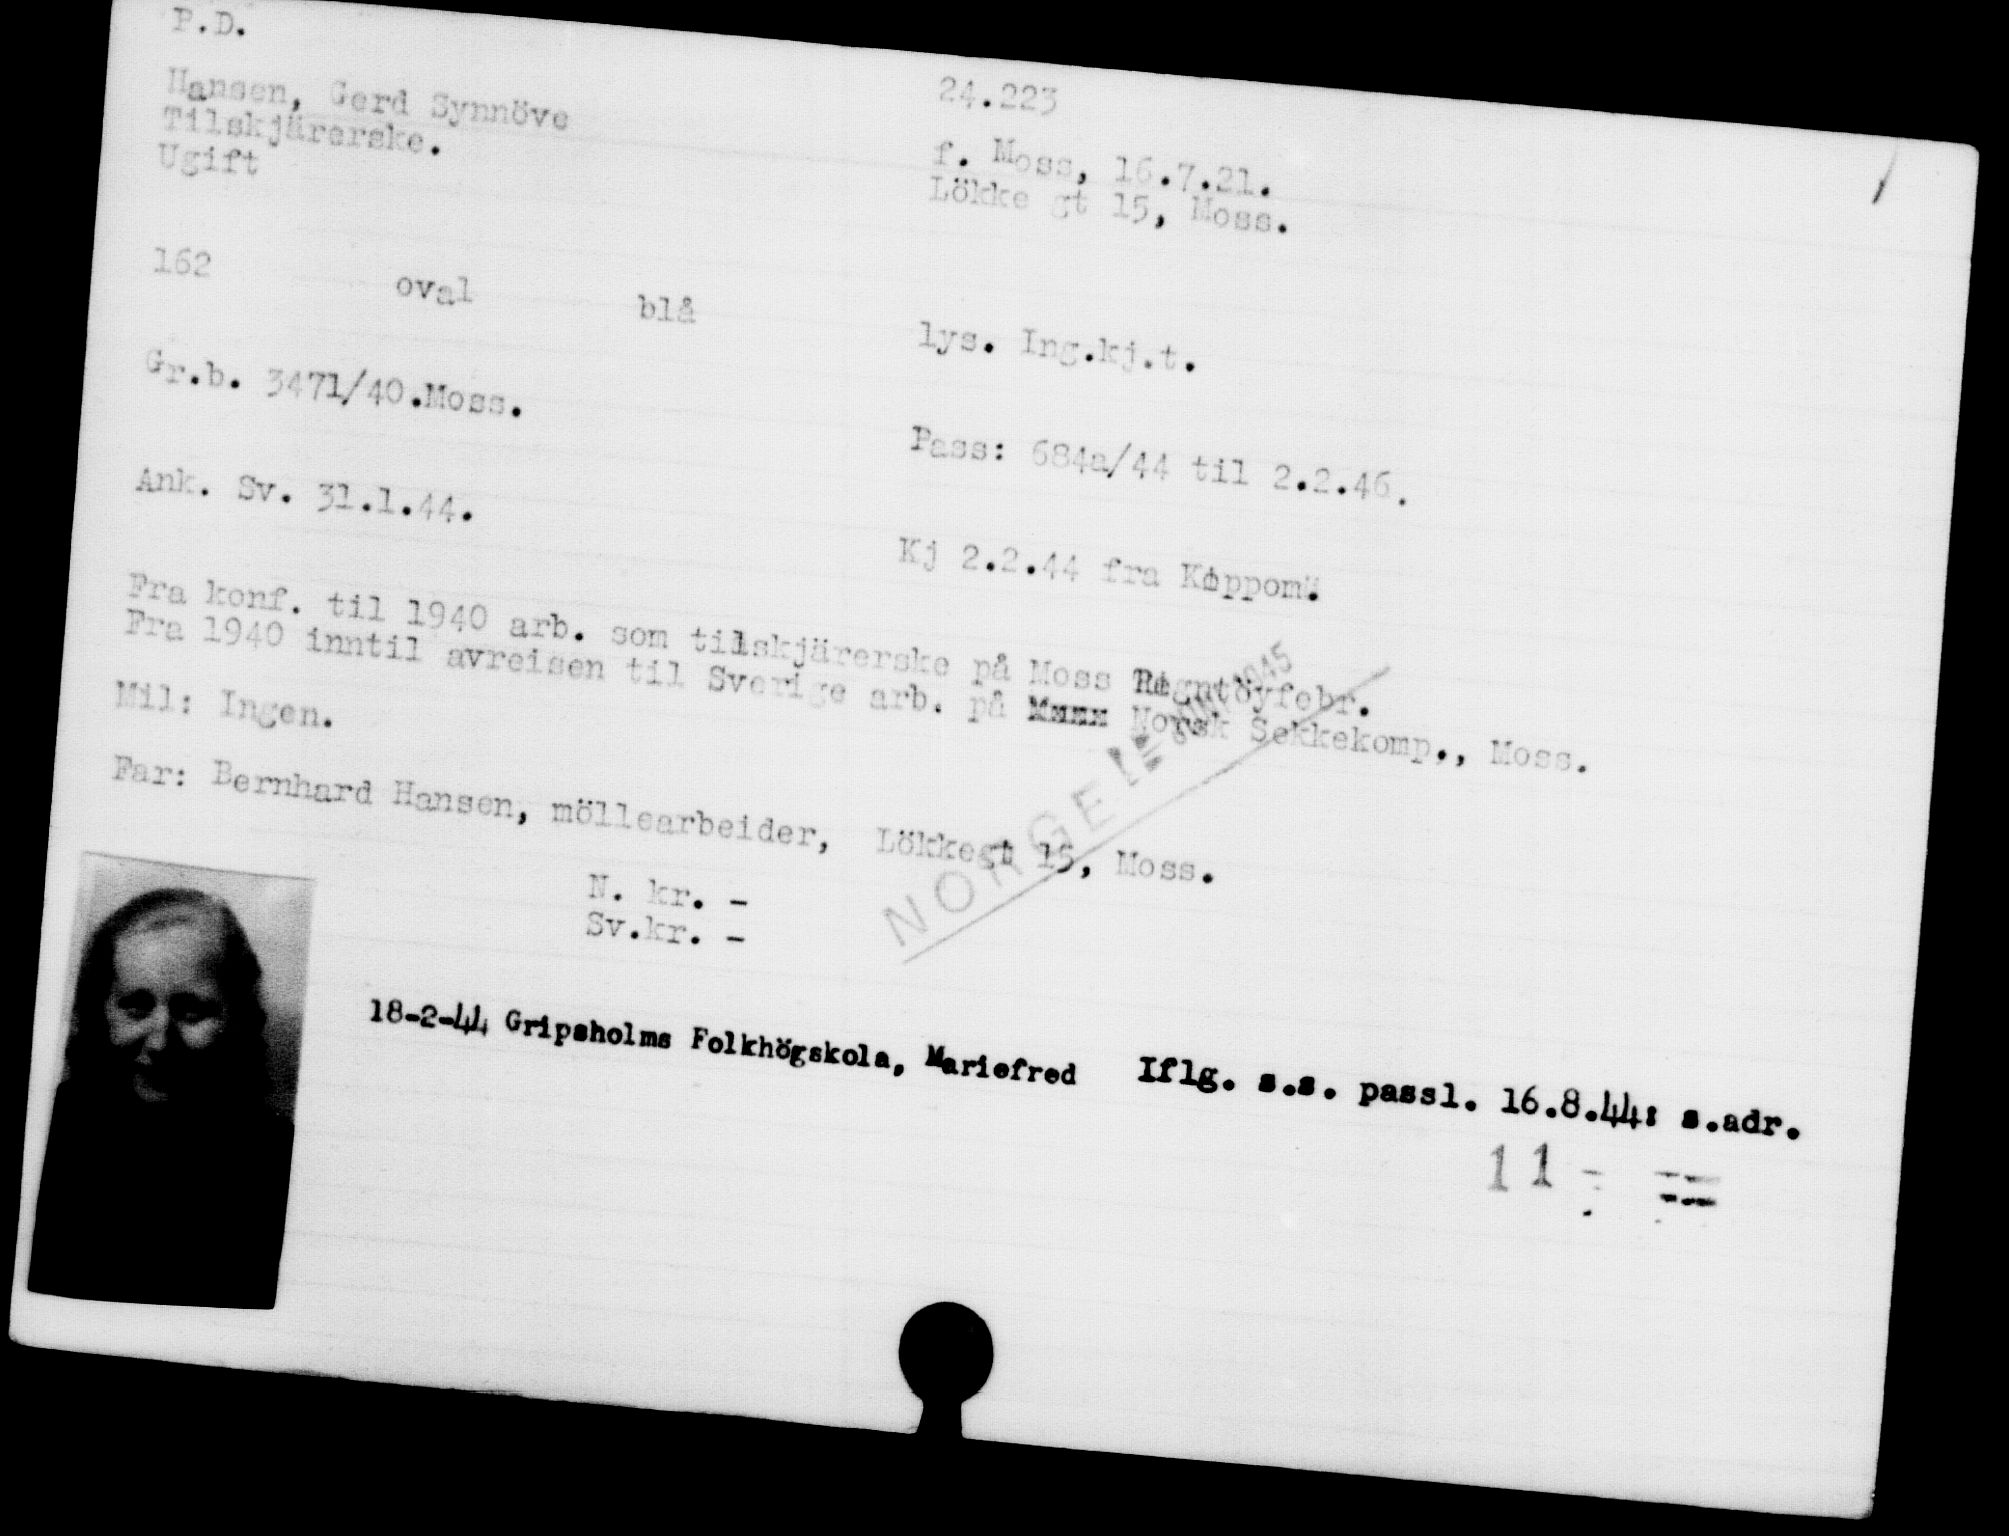 P.D.
24.223
Hansen, Gerd Synnöve
Tilskjärerske.
Ugift
f. Moss, 16.7.21.
Lökke gt 15, Moss.
162 oval blå lys. Ing.kj.t.
Gr.b. 3471/40.Moss.
Pass: 684a/44 til 2.2.46.
Ank. Sv. 31.1.44.
Kj 2.2.44 fra Koppom.
Fra konf. til 1940 arb. som tilskjärerske på Moss Regntöyfebr.
Fra 1940 inntil avreisen til Sverige arb. på Norsk Sekkekomp., Moss.
Mil: Ingen.
Far: Bernhard Hansen, möllearbeider, Lökkegt 15, Moss.
N. kr. -
Sv.kr. -
NORGE 1945
18-2-44 Gripsholms Folkhögskola, Mariefred Iflg. s.s. passl. 16.8.44: s.adr.
11